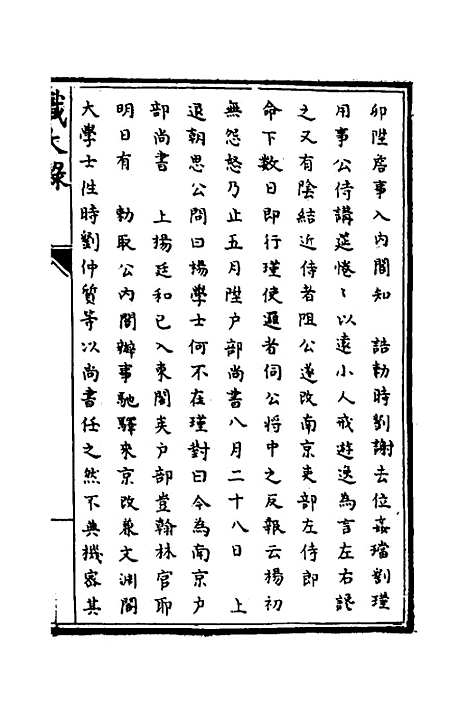 卯陞詹事入內閣知　誥勅時劉謝去位姦璫劉瑾
用事公侍講筵惓〻以遠小人戒遊逸為言左右誋
之又有陰結近侍者阻公遂改南京吏部左侍郎
命下數日即行瑾使邏者伺公將中之反報云楊初
無怨怒乃止五月陞户部尚書八月二十八日　上
退朝思公問曰楊學士何不在瑾對曰今為南京户
部尚書　上楊廷和已入東閣矣户部豈翰林官耶
明日有　勅取公內閣辦事馳驛來京改兼文淵閣
大學士往時劉仲質等以尚書任之然不典機宻其
識大錄